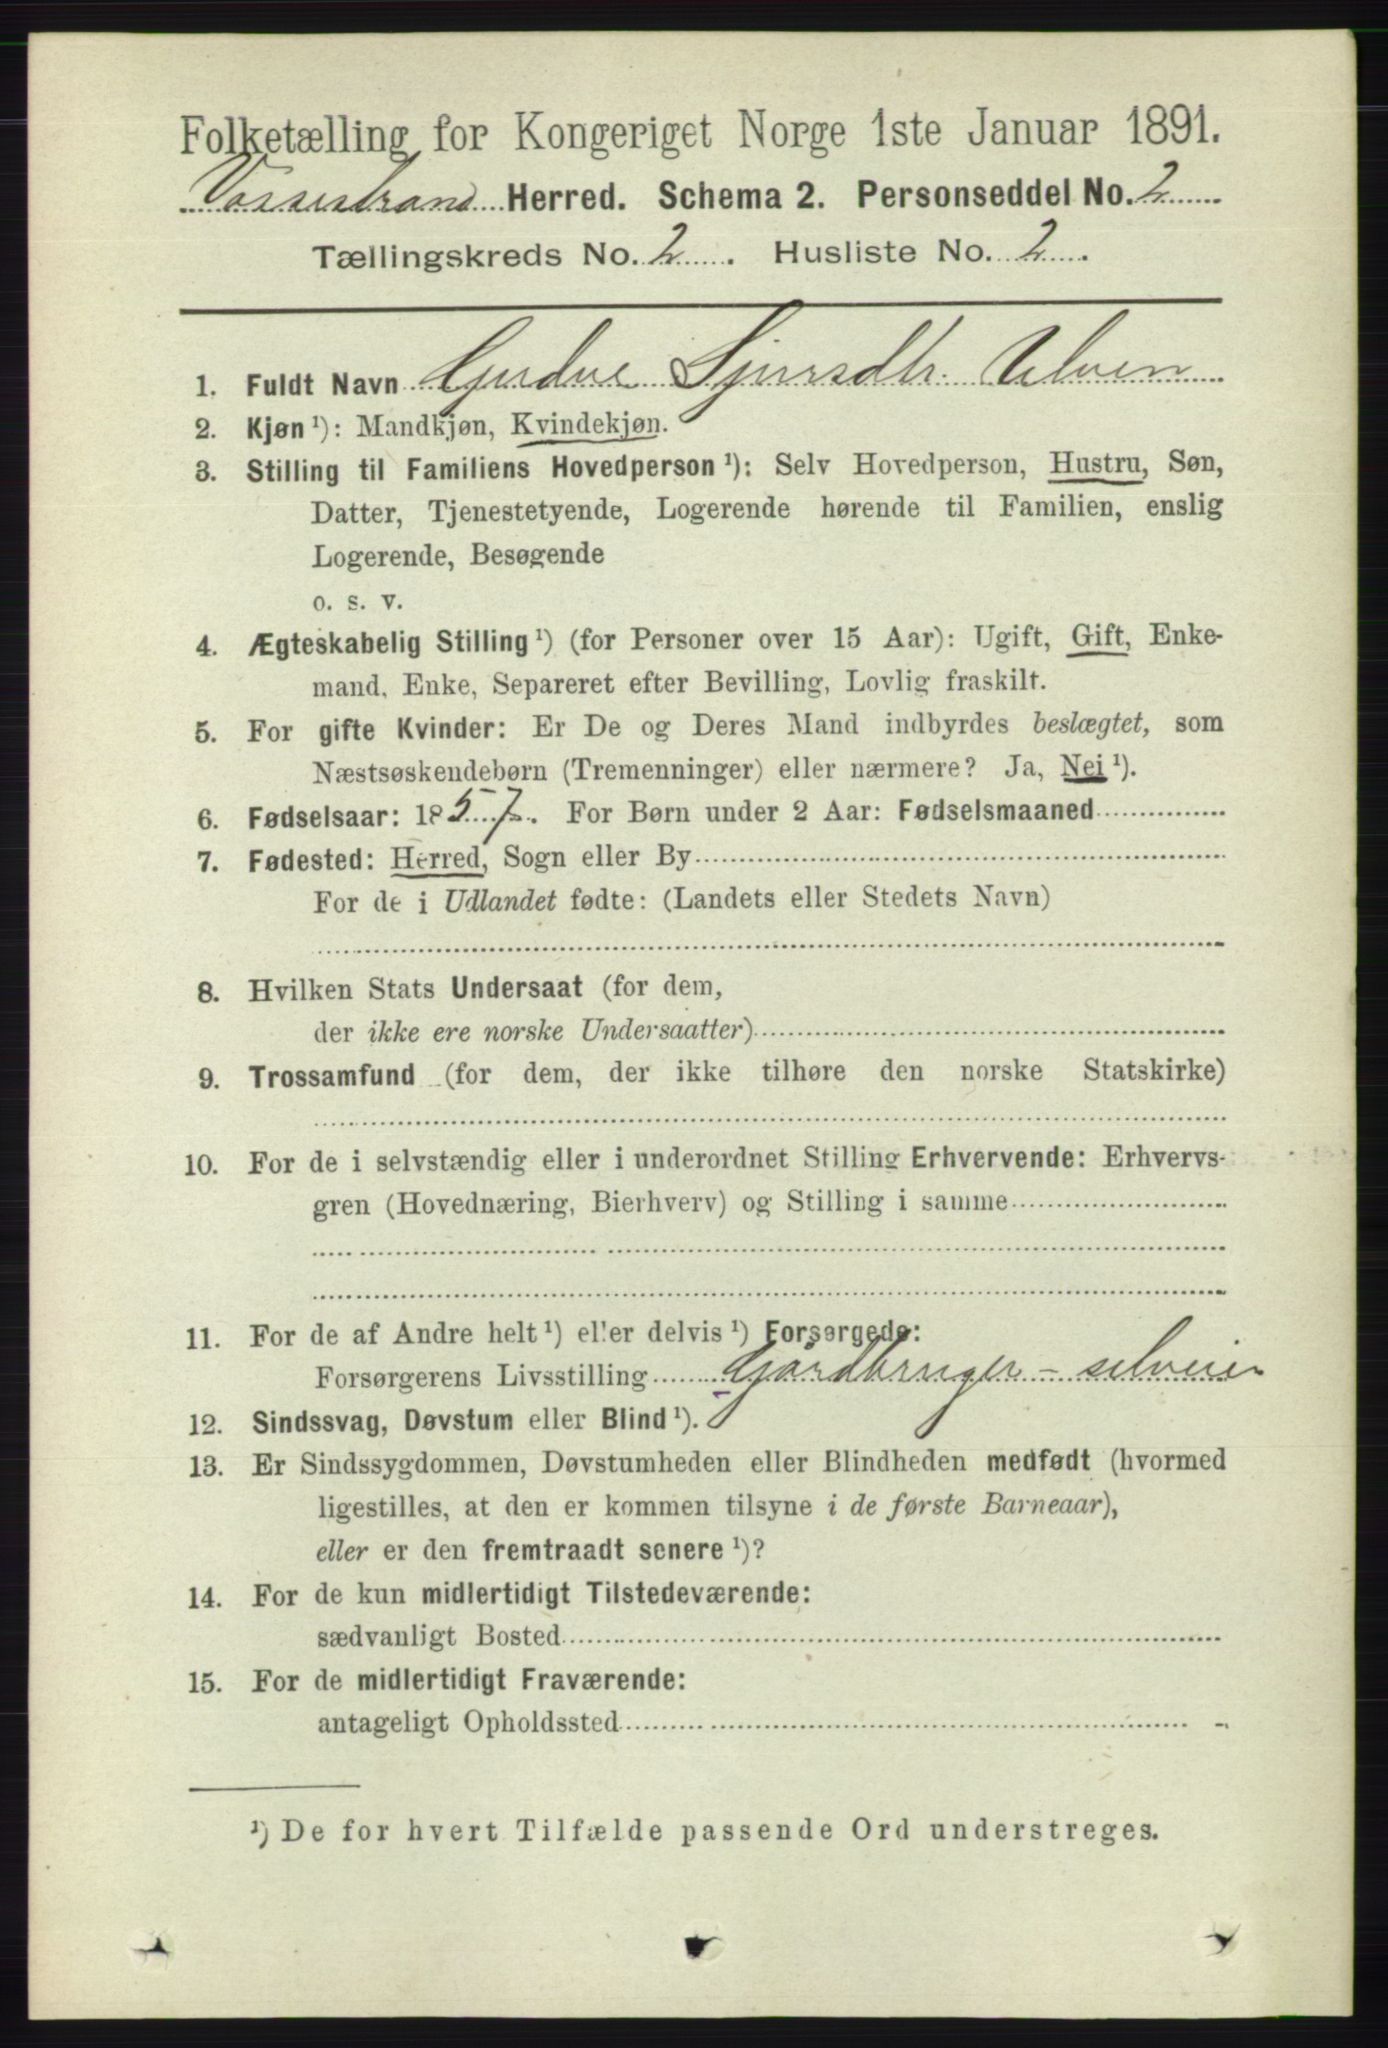 Folketælling for Kongeriget Norge 1ste Januar 1891.
Vossestrand Herred. Schema 2. Personseddel No. 2
Tællingskreds No. 2. Husliste No. 2.
1. Fuldt Navn Gjerdve Sjursdtr. Ulven
2. Kjøn ¹): Mandkjøn, Kvindekjøn.
3. Stilling til Familiens Hovedperson ¹): Selv Hovedperson, Hustru, Søn,
Datter, Tjenestetyende, Logerende hørende til Familien, enslig
Logerende, Besøgende
o. s. v.
4. Ægteskabelig Stilling ¹) (for Personer over 15 Aar): Ugift, Gift, Enke-
mand, Enke, Separeret efter Bevilling, Lovlig fraskilt.
5. For gifte Kvinder: Er De og Deres Mand indbyrdes beslægtet, som
Næstsøskendebørn (Tremenninger) eller nærmere? Ja, Nei ¹).
6. Fødselsaar: 1857. For Børn under 2 Aar: Fødselsmaaned
7. Fødested: Herred, Sogn eller By
For de i Udlandet fødte: (Landets eller Stedets Navn)
8. Hvilken Stats Undersaat (for dem,
der ikke ere norske Undersaatter)
9. Trossamfund (for dem, der ikke tilhøre den norske Statskirke)
10. For de i selvstændig eller i underordnet Stilling Erhvervende: Erhvervs-
gren (Hovednæring, Bierhverv) og Stilling i samme
11. For de af Andre helt ¹) eller delvis ¹) Forsørgede:
Forsørgerens Livsstilling Gårdbruger - selveier
12. Sindssvag, Døvstum eller Blind ¹).
13. Er Sindssygdommen, Døvstumheden eller Blindheden medfødt (hvormed
ligestilles, at den er kommen tilsyne i de første Barneaar),
eller er den fremtraadt senere ¹)?
14. For de kun midlertidigt Tilstedeværende:
sædvanligt Bosted
15. For de midlertidigt Fraværende:
antageligt Opholdssted
¹) De for hvert Tilfælde passende Ord understreges.